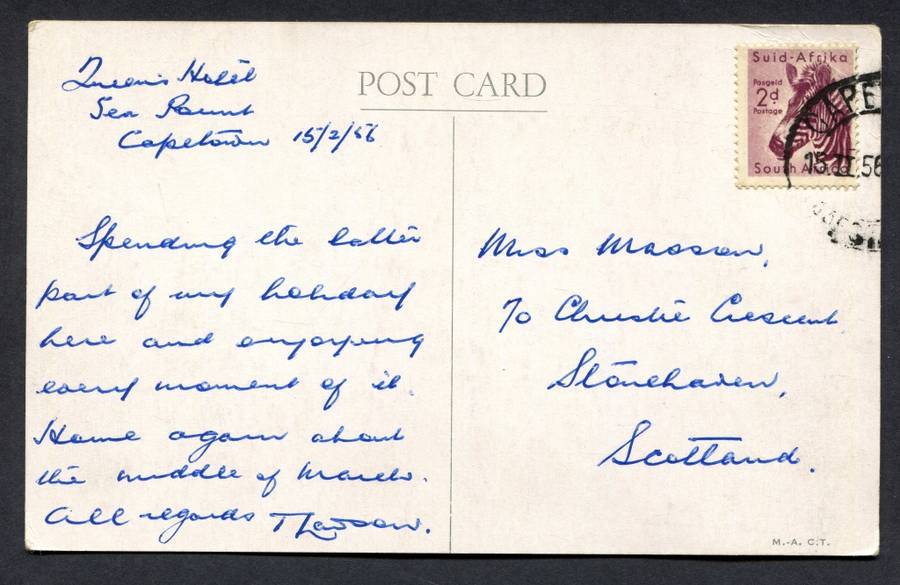 Queen's Hotel
Sea Point
Capetown 15/2/56
Spending the latter
part of my holiday
here and enjoying
every moment of it.
Home again about
the middle of March.
All regards T Lawson.
POST CARD
Suid-Afrika
Posgeld
2d
Postage
South Africa
15 II 56
Miss Masson,
70 Christie Crescent
Stonehaven,
Scotland.
M.-A. C.T.